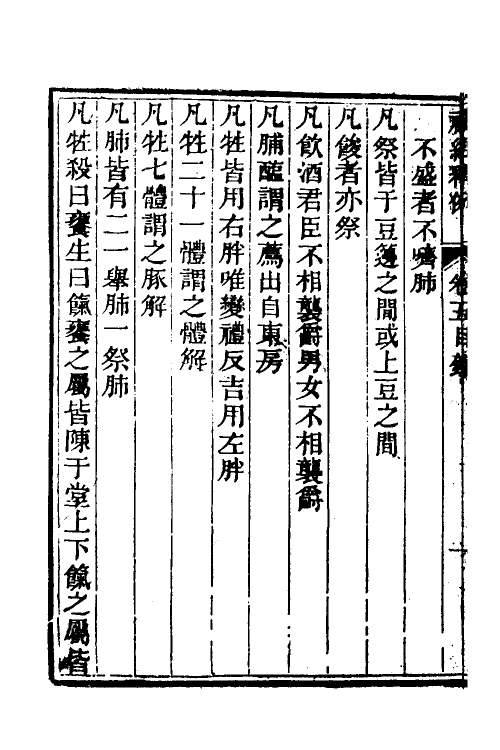 禮經釋例 卷五目錄 一
不盛者不嚌肺
凡祭皆于豆籩之間或上豆之間
凡餕者亦祭
凡飲酒君臣不相襲爵男女不相襲爵
凡脯醢謂之薦出自東房
凡牲皆用右胖唯變禮反吉用左胖
凡牲二十一體謂之體解
凡牲七體謂之豚解
凡肺皆有二一舉肺一祭肺
凡牲殺曰饔生曰餼饔之屬皆陳于堂上下餼之屬皆